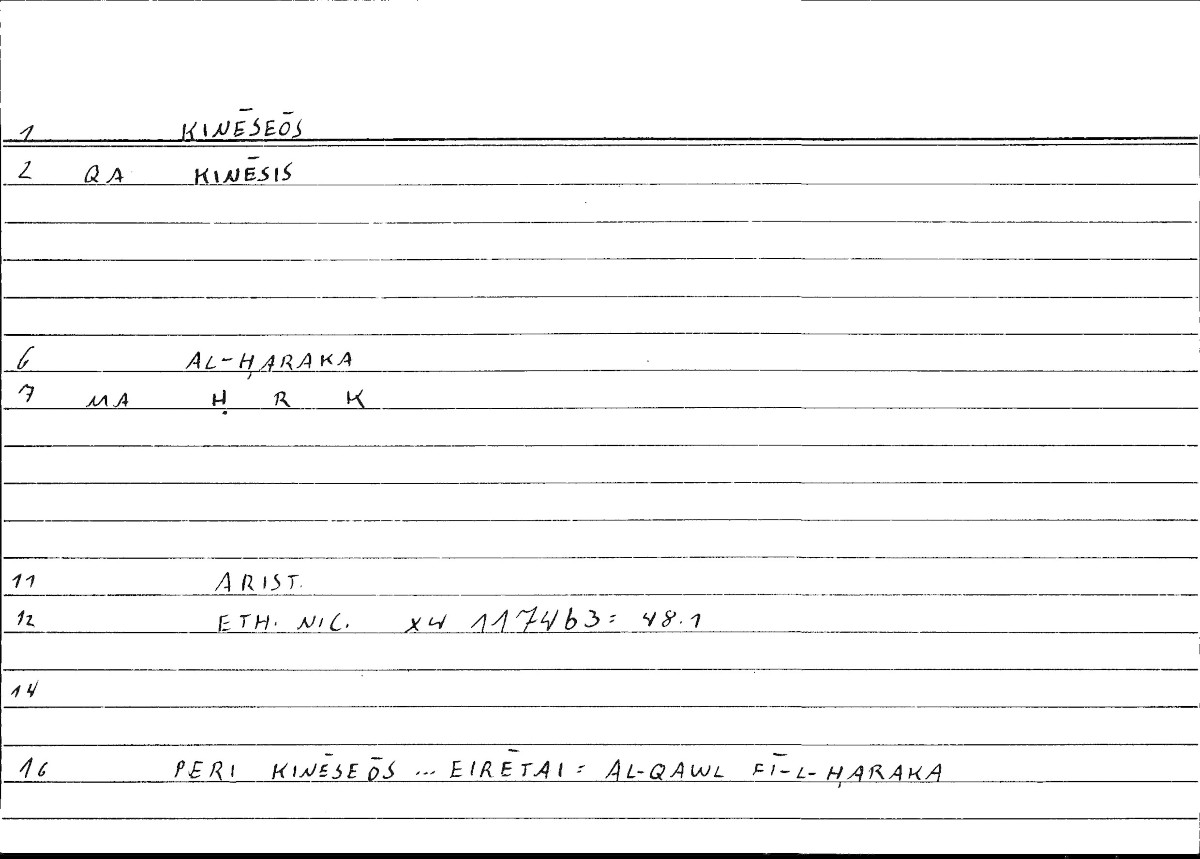 1 KINĒSEŌS
2 QA KINĒSIS
6 AL-ḤARAKA
7 MA Ḥ R K
11 ARIST.
12 ETH. NIC. X4 1174b3 = 48.1
14
16 PERI KINĒSEŌS ... EIRĒTAI = AL-QAWL FĪ-L-ḤARAKA